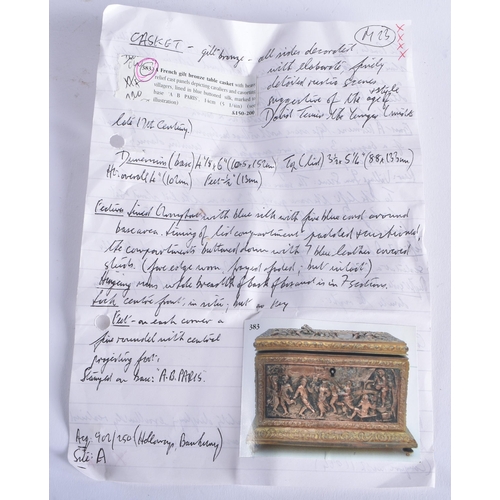 CASKET - gilt bronze - all sides decorated
M 23
with elaborate, finely
detailed rustic scenes
suggestive of the style of
David Teniers the Younger
383 A French gilt bronze table casket with heavy
relief cast panels depicting cavaliers and carousing
villagers, lined in blue buttoned silk, marked to
base 'A B PARIS' 14cm (5 1/2in) (see
illustration) £150-200
Late 19th Century)
Dimensions (base) 4⅛ x 6" (10.5 x 15.2cm) Top (Lid) 3½ x 5¼" (8.8 x 13.3cm)
Ht: overall 4" (10.2cm) Feet - ½" (13mm)
Features Lined throughout with blue silk with fine blue cord around
base area. Lining of lid compartment padded & cushioned,
the compartments buttoned down with 7 blue leather covered
studs. (fine edge worn frayed & faded; but intact)
Hinging runs whole breadth of back of & is in 7 sections.
Lock centre front; in situ; but no key
Feet - on each corner a
fine roundel with central
projecting foot.
Stamped on base: A.B. PARIS.
383
Acq. 902/250 (Holloways, Banbury)
Site: A